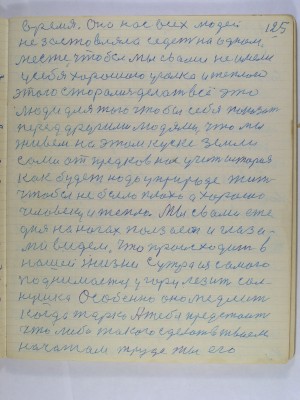 125
время. Она нас всех людей
не заставляла сидеть на одном,
месте, чтобы мы с вами не имели
у себя хорошего уголка и теплого
этого старались делать всё это
люди для того чтобы себя показать
перед другими людями, что мы
живем на этом куске земли
сами от предков нас учит история
как будет надо у природе жить
чтобы не было плохо а хорошо
человеку, и тепло. Мы с вами еже
дня на ногах ползаем и глаза-
ми видем, что происходит в
нашей жизни С утра я самого
поднимаюсь у гору лезит сол-
нушко Особенно оно медлит
когда жарко А тебе предстоит
что либо такого сделать в твоем
начатом труде ты его